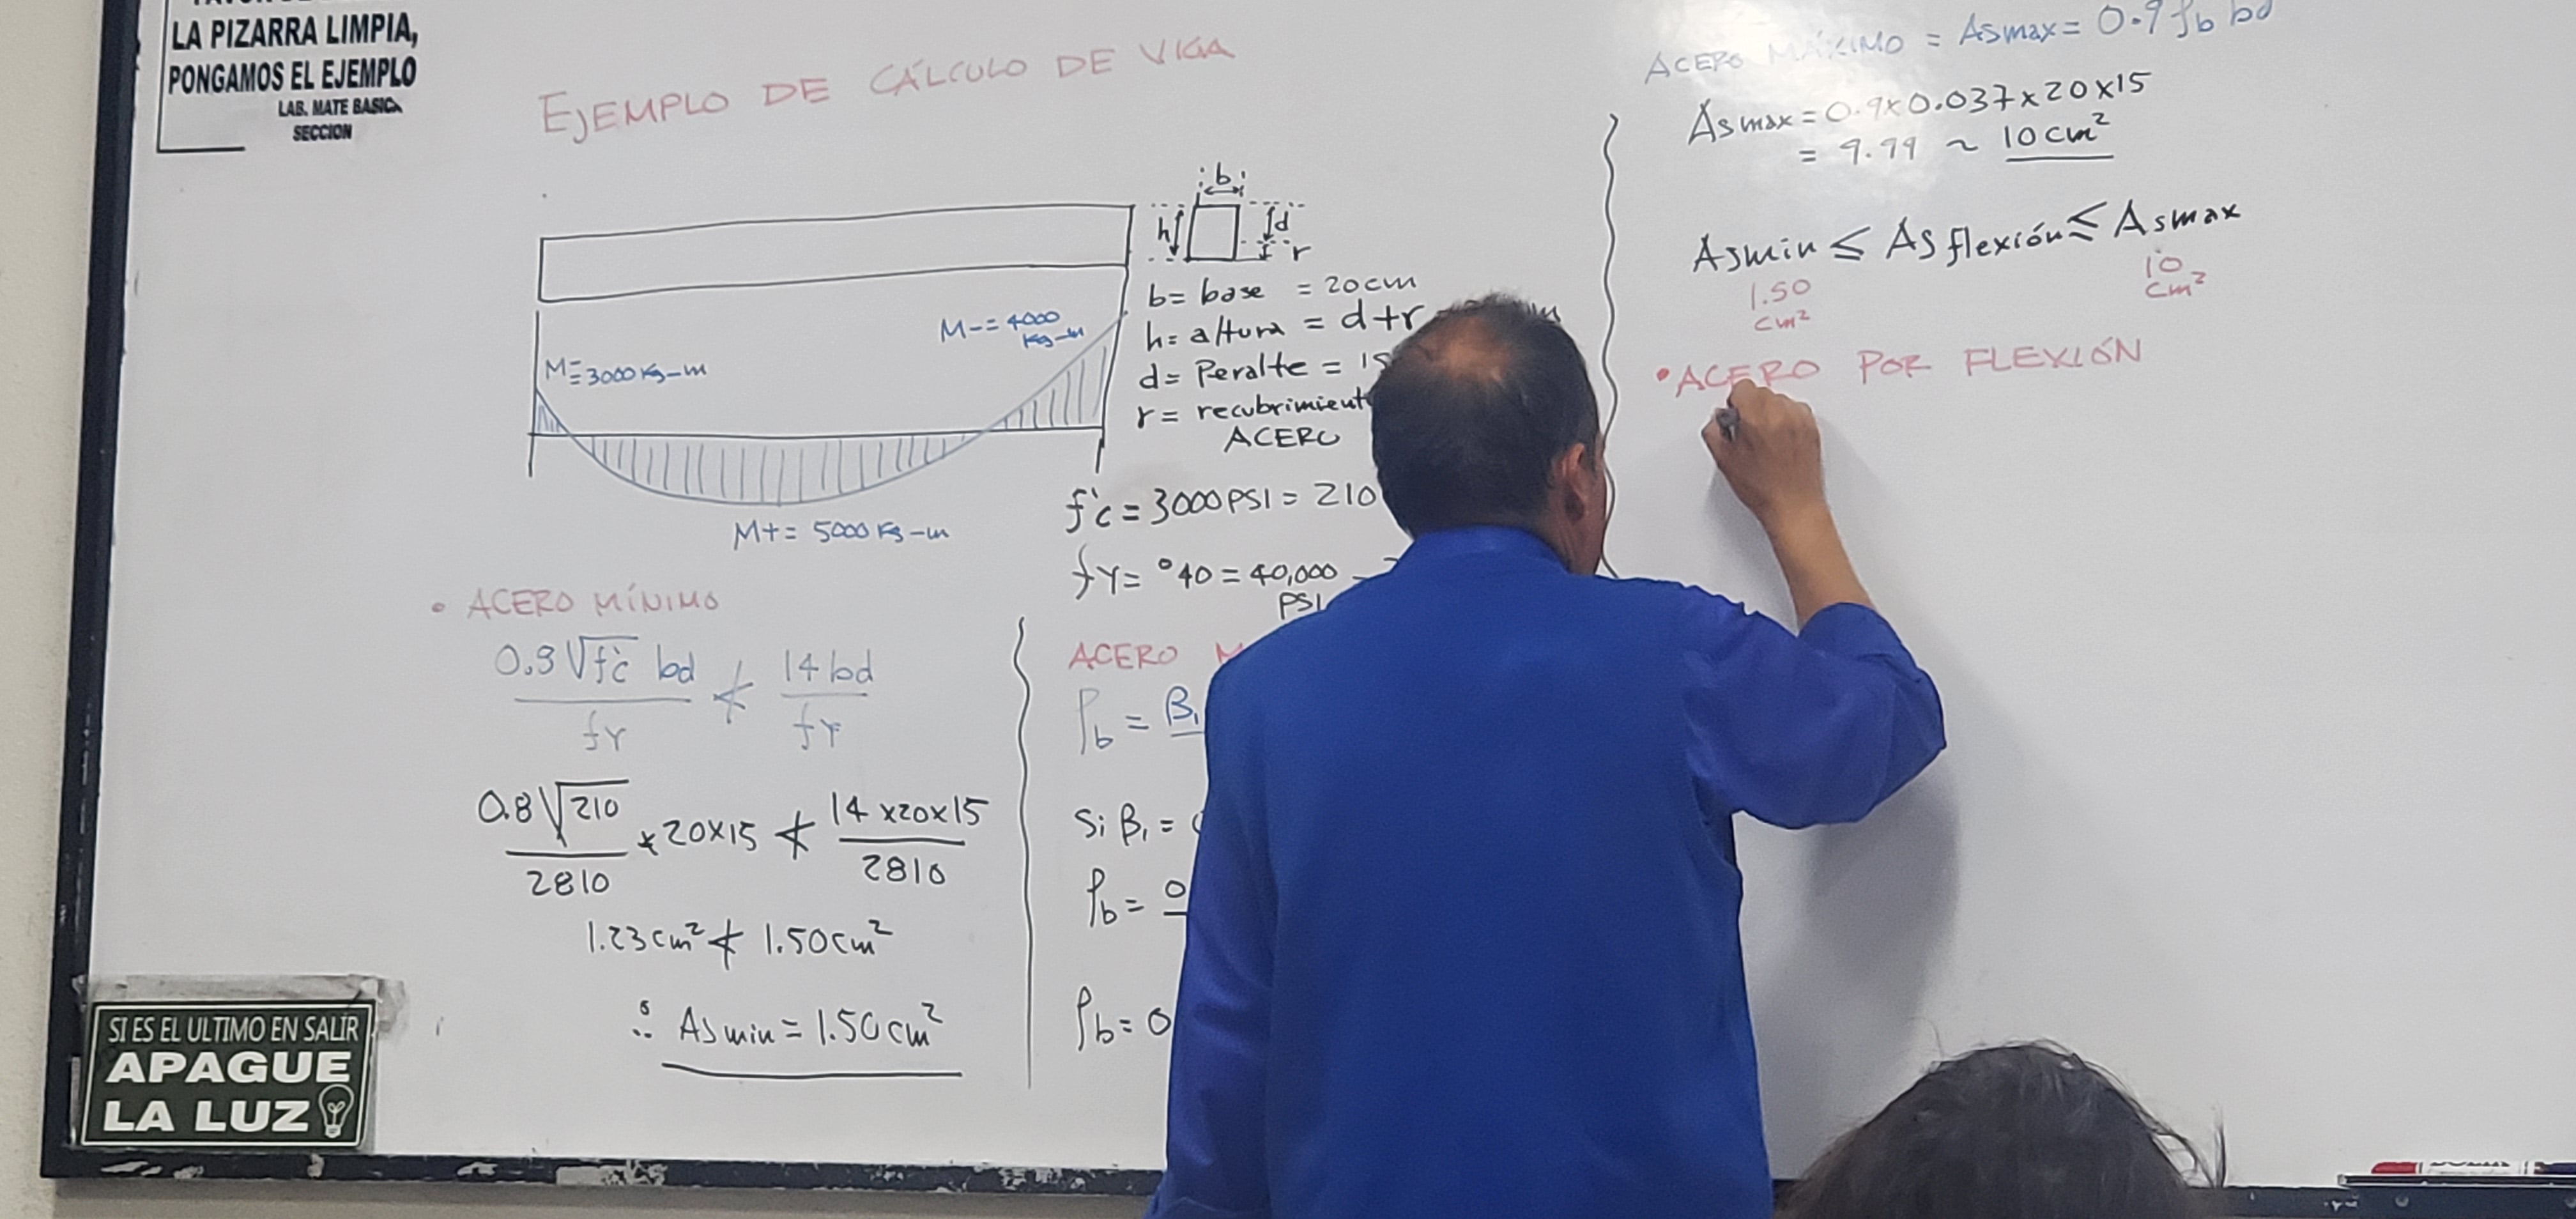 LA PIZARRA LIMPIA,
PONGAMOS EL EJEMPLO
LAB. MATE BASICA
SECCION
EJEMPLO DE CÁLCULO DE VIGA
b
h
d
r
M-= 4000
Kg-m
M-
= 3000 Kg-m
M+= 5000 Kg-m
b= base = 20cm
h= altura = d+r
d= Peralte = 15
r= recubrimient
ACERO
f'c = 3000 PSI = 210
fy= °40 = 40,000
PSI
• ACERO MÍNIMO
0.8√f'c bd ≮ 14bd
fy fy
0.8√210 * 20x15 ≮ 14 x20x15
2810 2810
1.23cm² ≮ 1.50cm²
∴ Asmin = 1.50cm²
ACERO M
ρb = β₁
Si β₁ =
ρb = 0
ρb= 0
ACERO MÁXIMO = Asmax= 0.9 ρb bd
Asmax= 0.9x0.037x20x15
= 9.99 ~ 10cm²
Asmin ≤ As flexión ≤ Asmax
1.50
cm²
10
cm²
• ACERO POR FLEXIÓN
SI ES EL ULTIMO EN SALIR
APAGUE
LA LUZ